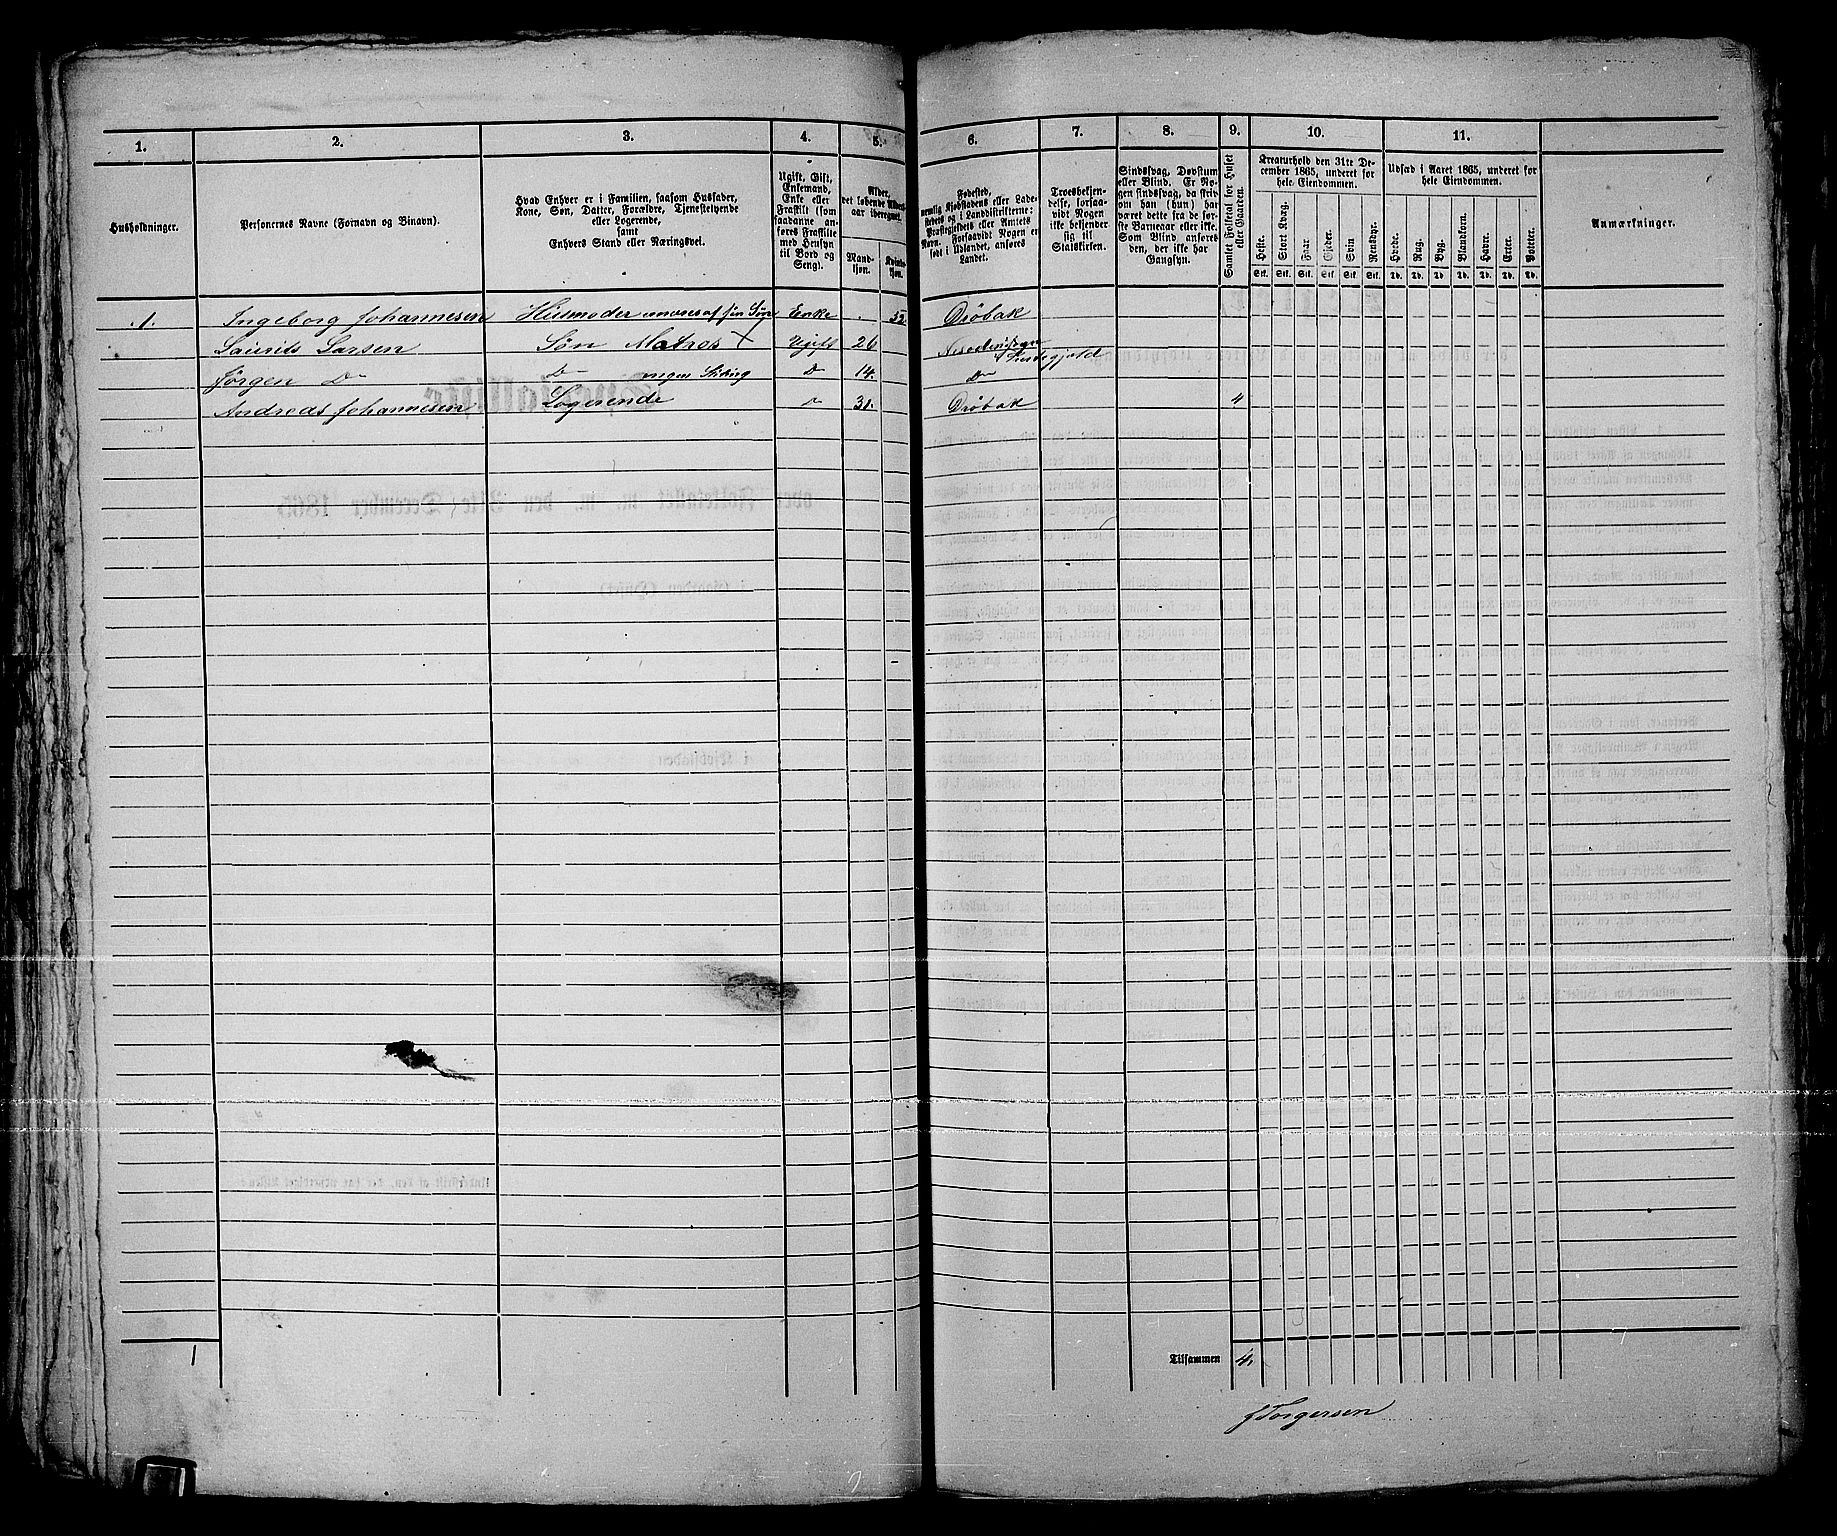 1. 2. 3. 4. 5. 6. 7. 8. 9. 10. 11.
Husholdninger.
Personernes Navne (Fornavn og Binavn).
Hvad Enhver er i Familien, saasom Husfader,
Kone, Søn, Datter, Forældre, Tjenestetyende
eller Logerende,
samt
Enhvers Stand eller Næringsvei.
Ugift, Gift,
Enkemand,
Enke eller
Fraskilt (som
saadanne an-
føres Fraskilte
med Hensyn
til Bord og
Seng).
Alder,
det løbende Alders-
aar iberegnet.
Mand-
kjøn.
Kvinde-
kjøn.
Fødested,
nemlig Kjøbstadens eller Lade-
stedets og i Landdistrikterne:
Præstegjeldets eller Amtets
Navn. Forsaavidt Nogen er
født i Udlandet, anføres
Landet.
Troesbekjen-
delse, forsaa-
vidt Nogen
ikke bekjender
sig til
Statskirken.
Sindssvag, Døvstum
eller Blind. Er No-
gen sindssvag, da skriv
om han (hun) har
været dette fra de før-
ste Barneaar eller ikke.
Som Blind anføres
den, der ikke har
Gangsyn.
Samlet Folketal for Huset
eller Gaarden.
Kreaturhold den 31te De-
cember 1865, underet for
hele Eiendommen.
Heste. Stort Kvæg. Faar. Gjeder. Svin. Rensdyr.
Stk. Stk. Stk. Stk. Stk. Stk.
Udsæd i Aaret 1865, underet for
hele Eiendommen.
Hvede. Rug. Byg. Blandkorn. Havre. Erter. Poteter.
Td. Td. Td. Td. Td. Td. Td.
Anmærkninger.
1. Ingeborg Johannesen Husmoder sin Søn Enke 52 Drøbak
Laurits Larsen Søn Matros Ugift 26
Jørgen Do Do ingen Stilling Do 14. Do
Andreas Johannesen Logerende Do 31. Drøbak 4
1
Tilsammen 4.
J Torgersen